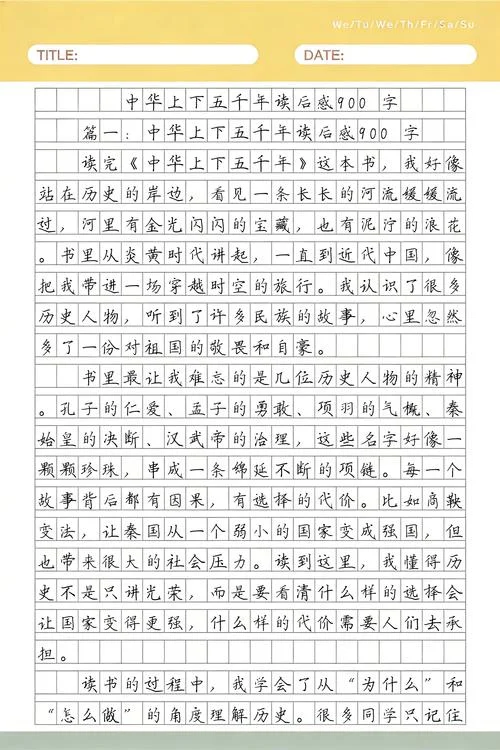 We/Tu/We/Th/Fr/Sa/Su
TITLE: DATE:
中华上下五千年读后感900 字
篇一：中华上下五千年读后感900 字
读完《中华上下五千年》这本书，我好像
站在历史的岸边，看见一条长长的河流缓缓流
过，河里有金光闪闪的宝藏，也有泥泞的浪花
。书里从炎黄时代讲起，一直到近代中国，像
把我带进一场穿越时空的旅行。我认识了很多
历史人物，听到了许多民族的故事，心里忽然
多了一份对祖国的敬畏和自豪。
书里最让我难忘的是几位历史人物的精神
。孔子的仁爱、孟子的勇敢、项羽的气概、秦
始皇的决断、汉武帝的治理，这些名字好像一
颗颗珍珠，串成一条绵延不断的项链。每一个
故事背后都有因果，有选择的代价。比如商鞅
变法，让秦国从一个弱小的国家变成强国，但
也带来很大的社会压力。读到这里，我懂得历
史不是只讲光荣，而是要看清什么样的选择会
让国家变得更强，什么样的代价需要人们去承
担。
读书的过程中，我学会了从“为什么”和
“怎么做”的角度理解历史。很多同学只记住